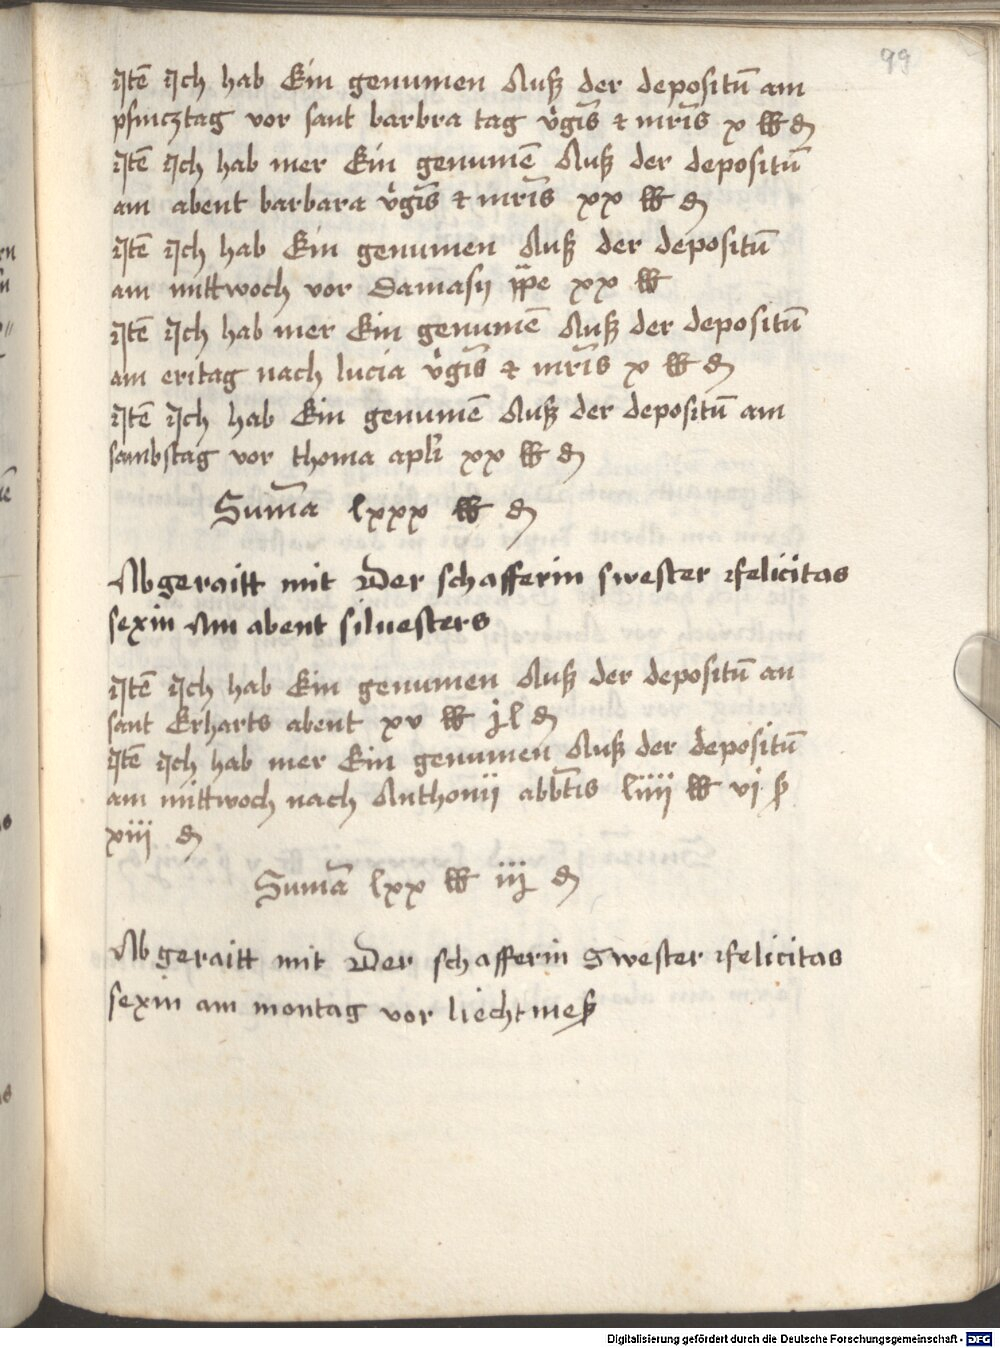 99
Jtē Jch hab Ein genumen Auß der depositū am
pfincztag vor sant barbra tag v̓gīs ⁊ mr̄is x ℔ ₰
Jtē Jch hab mer Ein genumē Auß der depositū
am abent barbara v̓gīs ⁊ mr̄is xx ℔ ₰
Jtē Jch hab Ein genumen Auß der depositū
am mittwoch vor Damasy p̄pe xx ℔
Jtē Jch hab mer Ein genumē Auß der depositū
am eritag nach lucia v̓gīs ⁊ mr̄is x ℔ ₰
Jtē Jch hab Ein genumē Auß der depositū am
sambstag vor thoma apli xx ℔ ₰
Sum̄a lxxx ℔ ₰
Abgeraitt mit Der schafferin swester felicitas
sexin Am abent siluesters
Jtē Jch hab Ein genumen Auß der depositū an
sant Erharts abent xv ℔ jl ₰
Jtē Jch hab mer Ein genumen Auß der depositū
am mittwoch nach Anthonij abbt̄is liiij ℔ vj ß
xiij ₰
Sum̄a lxx ℔ iij ₰
Abgeraitt mit Der schafferin Swester felicitas
sexin am montag vor liechtmeß
Digitalisierung gefördert durch die Deutsche Forschungsgemeinschaft - DFG